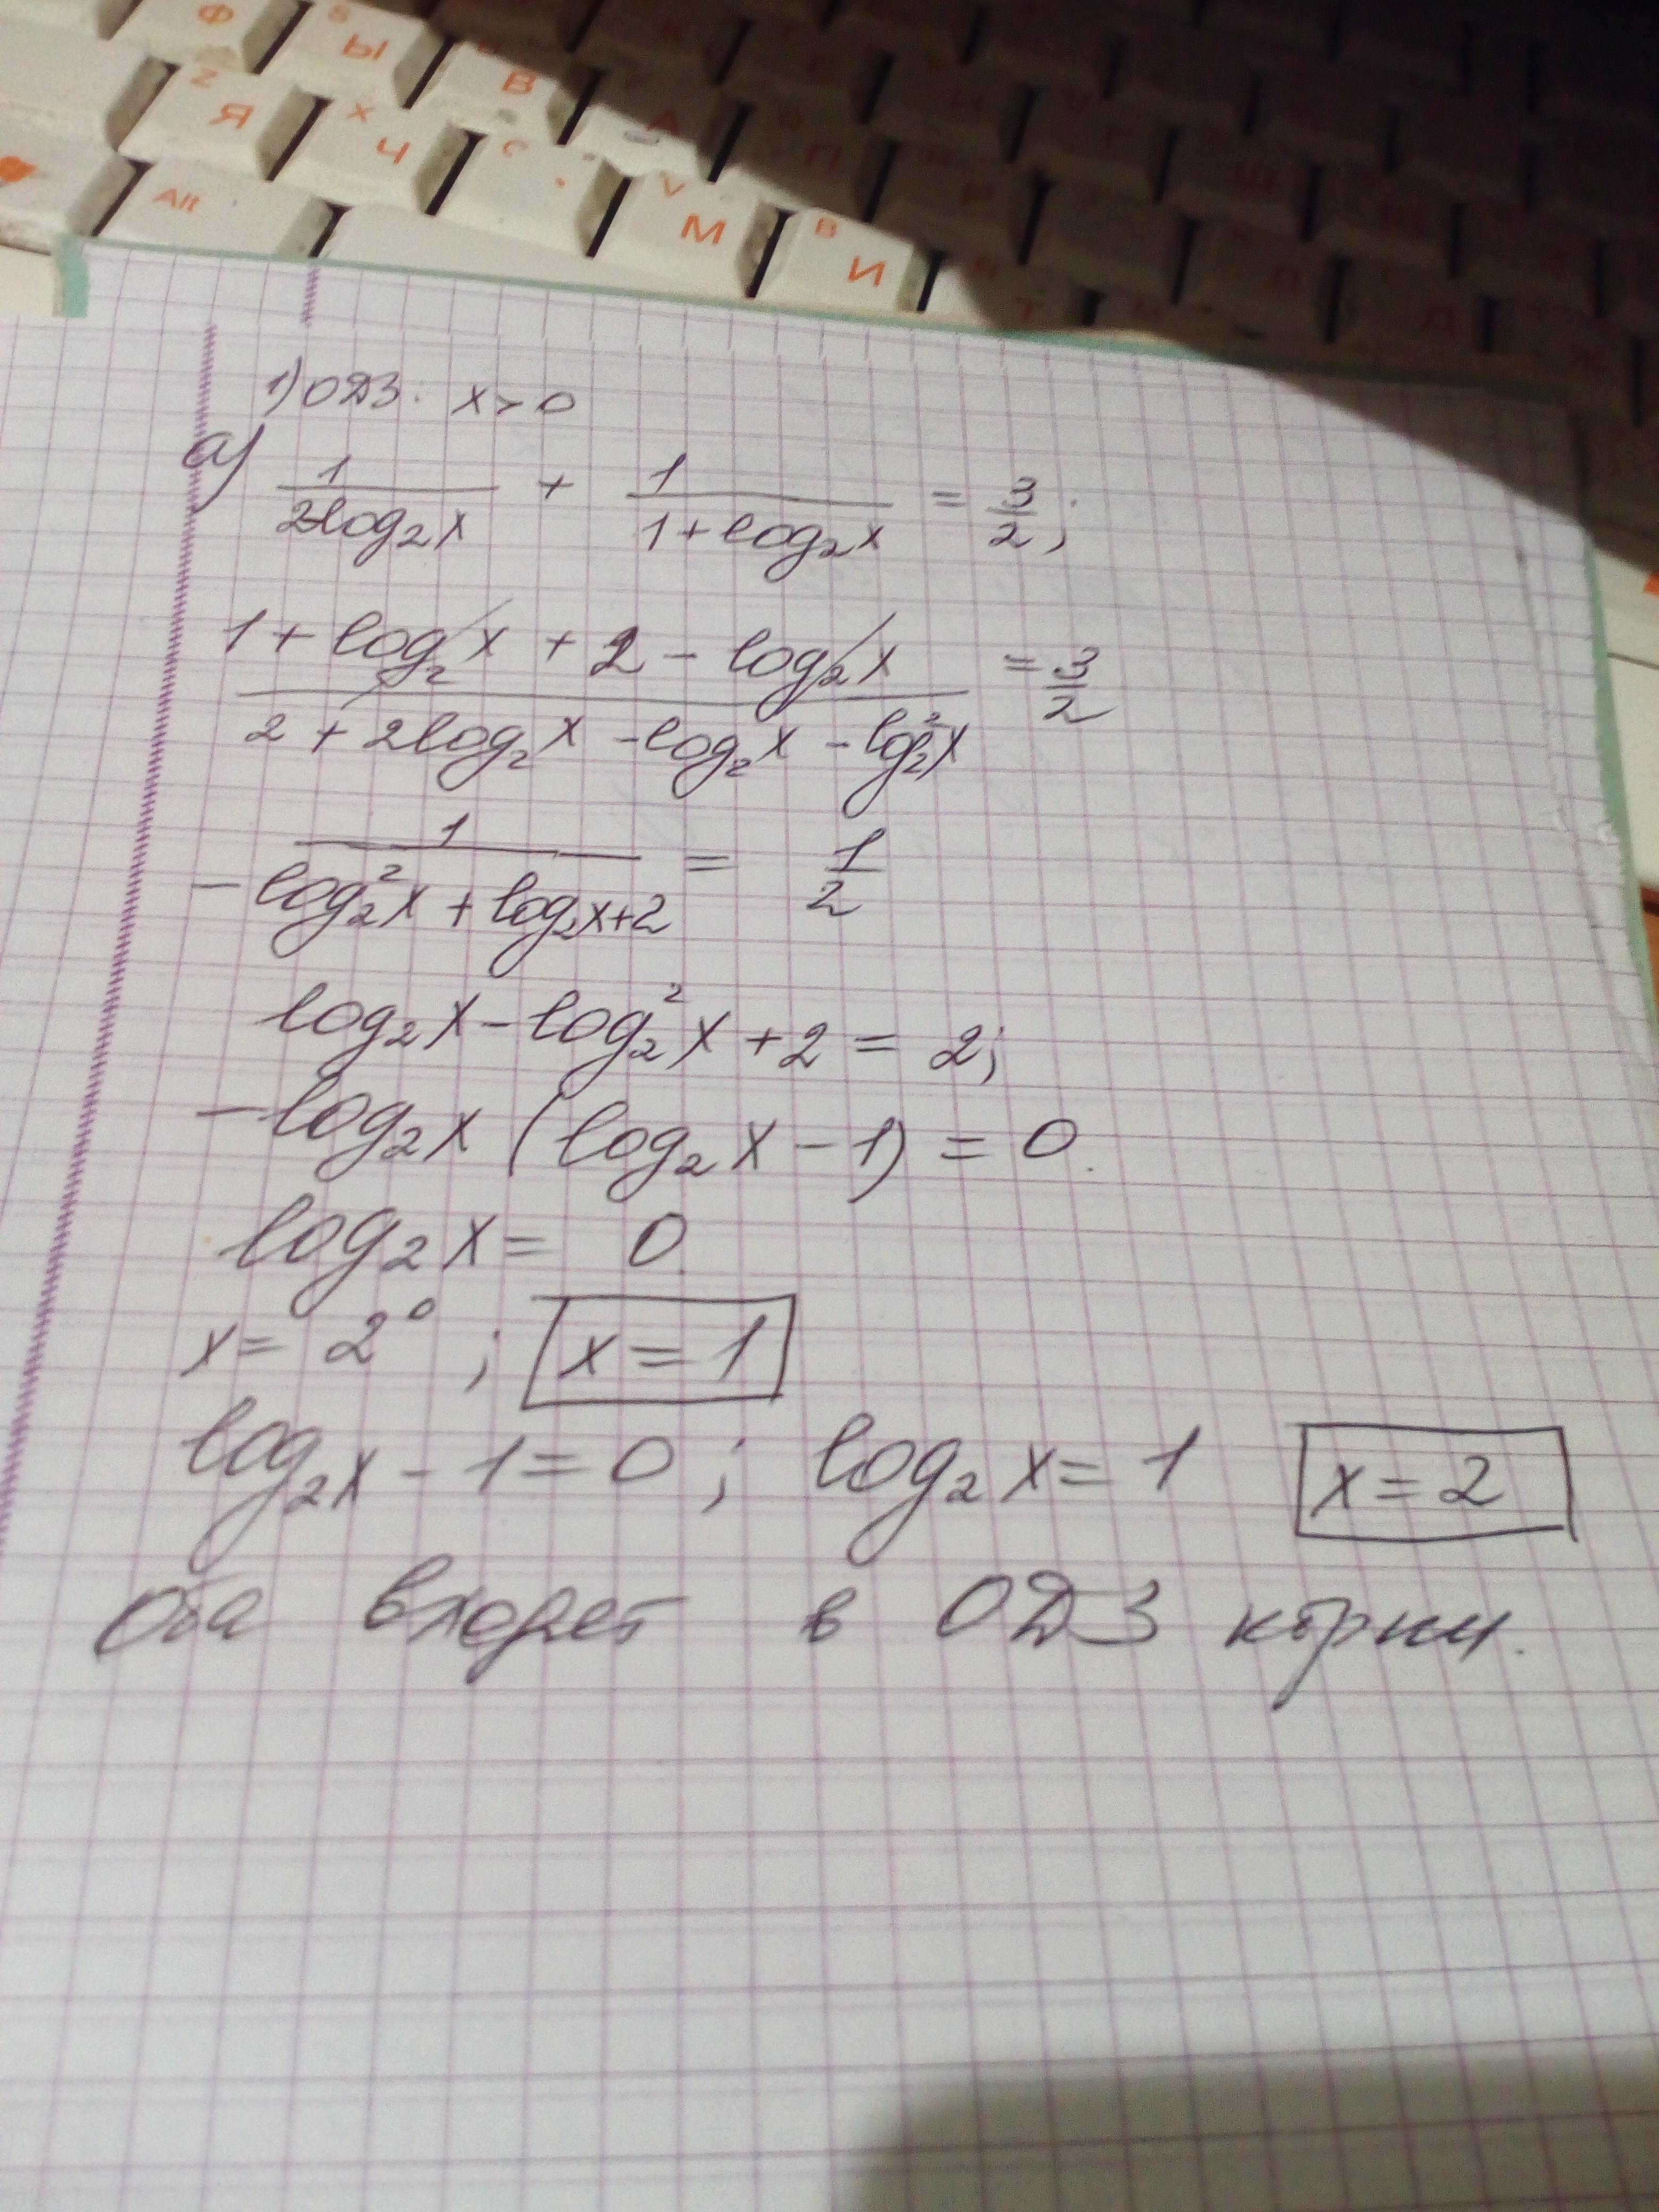 Ф Ы В
Z Я X Ч С V М В И
Alt
1) ОДЗ: x > 0
а) 1/(2-log₂x) + 1/(1+log₂x) = 3/2;
(1 + log₂x + 2 - log₂x)/(2 + 2log₂x - log₂x - log₂²x) = 3/2
1/(-log₂²x + log₂x + 2) = 1/2
log₂x - log₂²x + 2 = 2;
-log₂x (log₂x - 1) = 0.
log₂x = 0
x = 2⁰ ; x = 1
log₂x - 1 = 0 ; log₂x = 1 x = 2
Оба входят в ОДЗ корни.